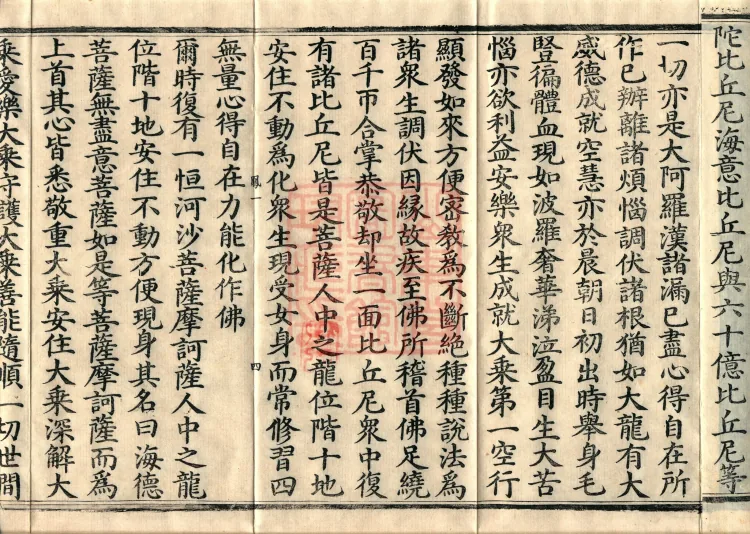 陀比丘尼海意比丘尼與六十億比丘尼等
一切亦是大阿羅漢諸漏已盡心得自在所
作已辦離諸煩惱調伏諸根猶如大龍有大
威德成就空慧亦於晨朝日初出時舉身毛
豎徧體血現如波羅奢華涕泣盈目生大苦
惱亦欲利益安樂衆生成就大乘第一空行
顯發如來方便密教爲不斷絕種種說法爲
諸衆生調伏因緣故疾至佛所稽首佛足繞
百千帀合掌恭敬却坐一面比丘尼衆中復
有諸比丘尼皆是菩薩人中之龍位階十地
安住不動爲化衆生現受女身而常修習四
鳳一 四
無量心得自在力能化作佛
爾時復有一恒河沙菩薩摩訶薩人中之龍
位階十地安住不動方便現身其名曰海德
菩薩無盡意菩薩如是等菩薩摩訶薩而爲
上首其心皆悉敬重大乘安住大乘深解大
乘愛樂大乘守護大乘善能隨順一切世間